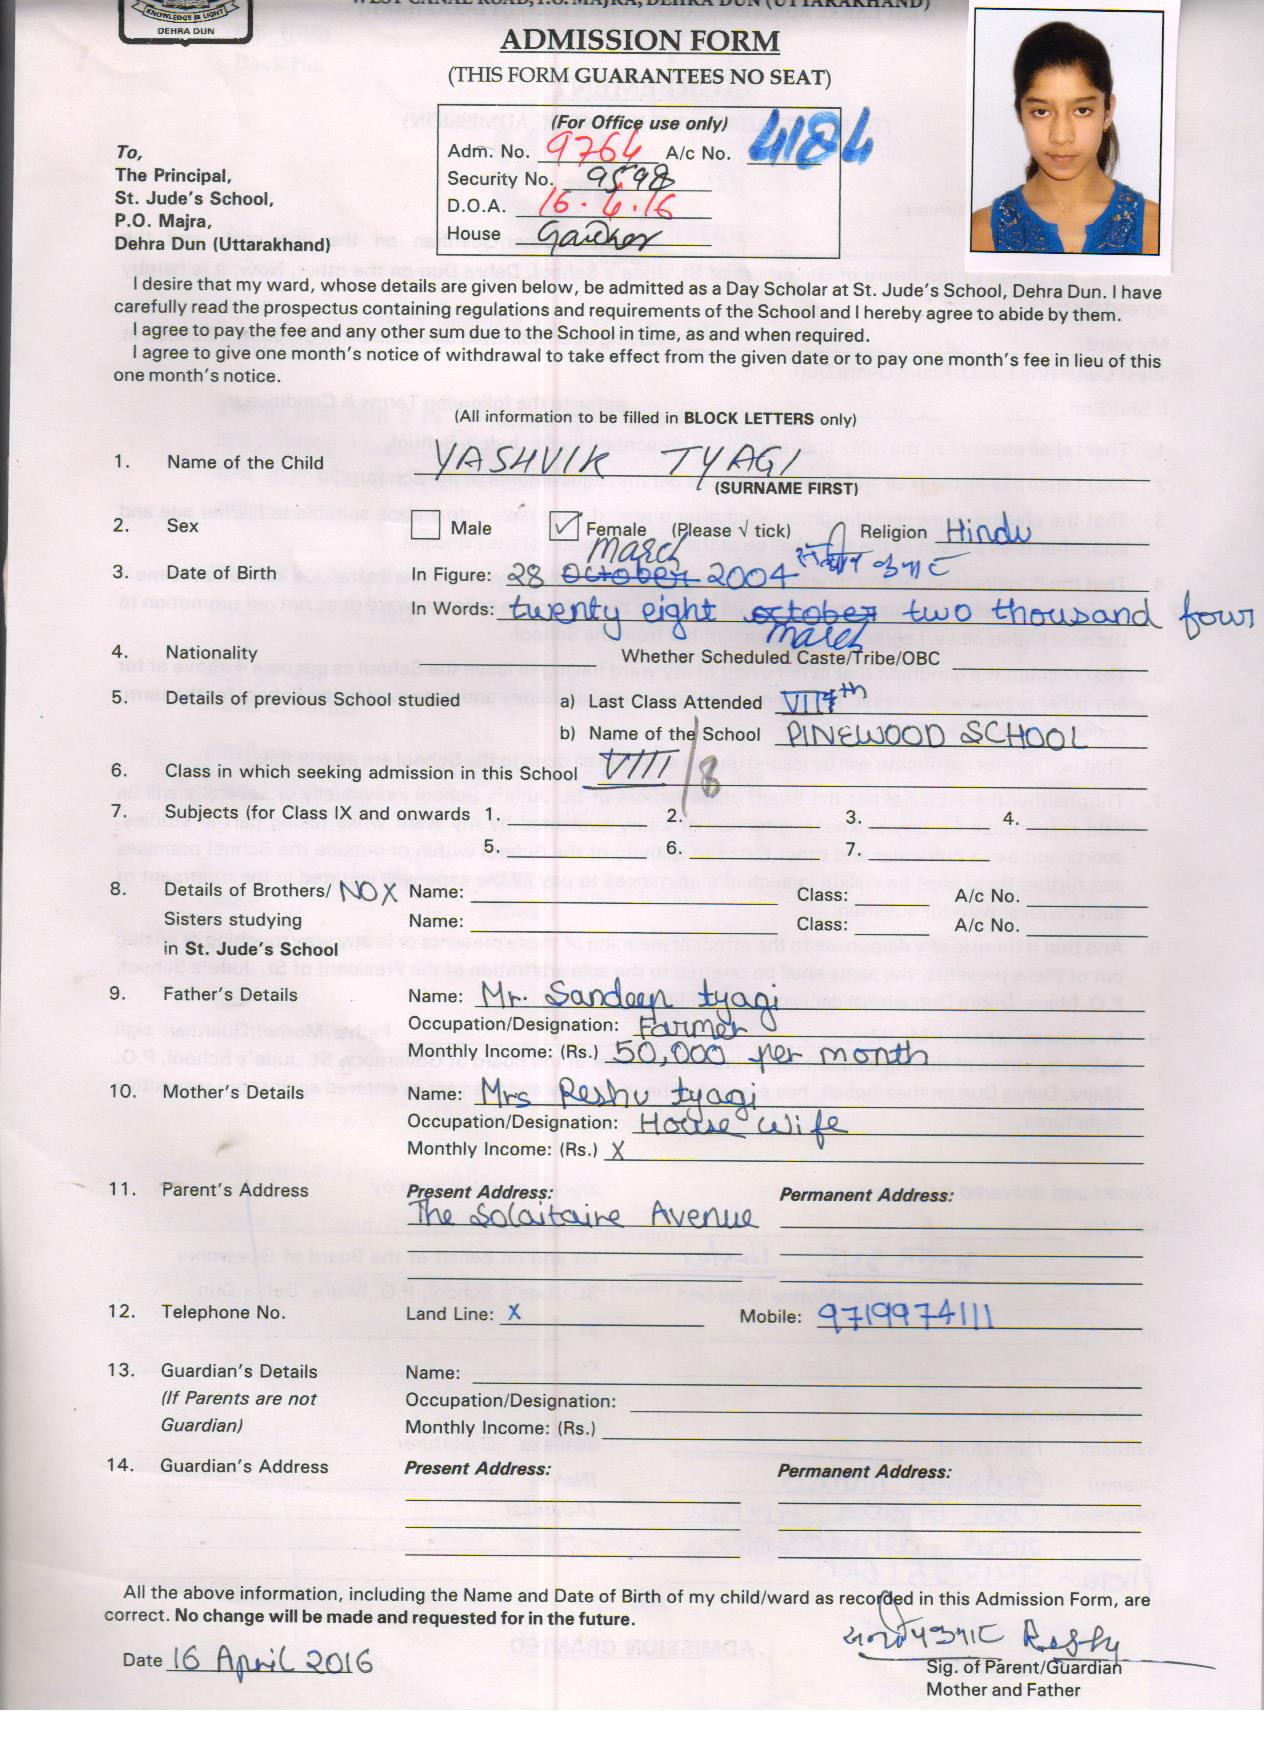 KNOWLEDGE IS LIGHT
DEHRA DUN
WEST CANAL ROAD, P.O. MAJRA, DEHRA DUN (UTTARAKHAND)
ADMISSION FORM
(THIS FORM GUARANTEES NO SEAT)
(For Office use only)
Adm. No. 9764 A/c No. 4184
Security No. 9598
D.O.A. 16.4.16
House
To,
The Principal,
St. Jude's School,
P.O. Majra,
Dehra Dun (Uttarakhand)
I desire that my ward, whose details are given below, be admitted as a Day Scholar at St. Jude's School, Dehra Dun. I have
carefully read the prospectus containing regulations and requirements of the School and I hereby agree to abide by them.
I agree to pay the fee and any other sum due to the School in time, as and when required.
I agree to give one month's notice of withdrawal to take effect from the given date or to pay one month's fee in lieu of this
one month's notice.
(All information to be filled in BLOCK LETTERS only)
1. Name of the Child YASHVIK TYAGI
(SURNAME FIRST)
2. Sex Male ✓ Female (Please √ tick) Religion Hindu
march
3. Date of Birth In Figure: 28 october 2004
In Words: twenty eight october two thousand four
march
4. Nationality Whether Scheduled Caste/Tribe/OBC
5. Details of previous School studied a) Last Class Attended VII th
b) Name of the School PINEWOOD SCHOOL
6. Class in which seeking admission in this School VIII / 8
7. Subjects (for Class IX and onwards 1. 2. 3. 4.
5. 6. 7.
8. Details of Brothers/ NO X Name: Class: A/c No.
Sisters studying Name: Class: A/c No.
in St. Jude's School
9. Father's Details Name: Mr. Sandeep tyagi
Occupation/Designation: Farmer
Monthly Income: (Rs.) 50,000 per month
10. Mother's Details Name: Mrs Reshu tyagi
Occupation/Designation: House wife
Monthly Income: (Rs.) X
11. Parent's Address Present Address: Permanent Address:
The Solaitaire Avenue
12. Telephone No. Land Line: X Mobile: 9719974111
13. Guardian's Details Name:
(If Parents are not Occupation/Designation:
Guardian) Monthly Income: (Rs.)
14. Guardian's Address Present Address: Permanent Address:
All the above information, including the Name and Date of Birth of my child/ward as recorded in this Admission Form, are
correct. No change will be made and requested for in the future.
Date 16 April 2016 Reshu
Sig. of Parent/Guardian
Mother and Father